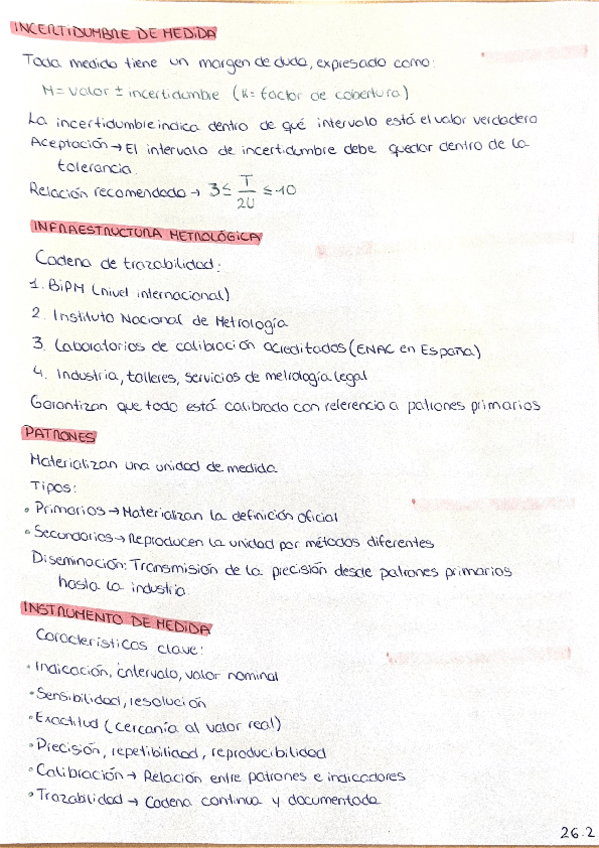 INCERTIDUMBRE DE MEDIDA
Toda medida tiene un margen de duda, expresado como:
M = valor ± incertidumbre (K = factor de cobertura)
La incertidumbre indica dentro de qué intervalo está el valor verdadero
Aceptación → El intervalo de incertidumbre debe quedar dentro de la
tolerancia.
Relación recomendada → 3 ≤ T/2U ≤ 10
INFRAESTRUCTURA METROLÓGICA
Cadena de trazabilidad:
1. BiPM (nivel internacional)
2. Instituto Nacional de Metrología
3. Laboratorios de calibración acreditados (ENAC en España)
4. Industria, talleres, servicios de metrología legal
Garantizan que todo está calibrado con referencia a patrones primarios
PATRONES
Materializan una unidad de medida
Tipos:
• Primarios → Materializan la definición oficial
• Secundarios → Reproducen la unidad por métodos diferentes
Diseminación: Transmisión de la precisión desde patrones primarios
hasta la industria
INSTRUMENTO DE MEDIDA
Características clave:
• Indicación, intervalo, valor nominal
• Sensibilidad, resolución
• Exactitud (cercanía al valor real)
• Precisión, repetibilidad, reproducibilidad
• Calibración → Relación entre patrones e indicadores
• Trazabilidad → Cadena continua y documentada
26.2